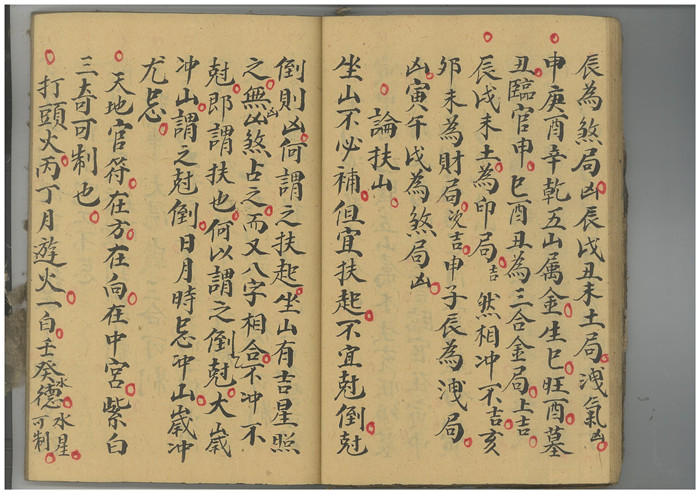 辰為煞局凶辰戌丑未土局洩氣凶
申庚酉辛乾五山属金生巳旺酉墓
丑臨官申巳酉丑為三合金局上吉
辰戌未土為印局吉然相冲不吉亥
夘未為財局次吉申子辰為洩局
凶寅午戌為煞局凶
論扶山
坐山不必補但宜扶起不宜尅倒尅
倒則凶何謂之扶起坐山有吉星照
之無凶煞占之而又八字相合不冲不
尅即謂扶也何以謂之倒尅大歲
冲山謂之尅倒日月時忌冲山歲冲
尤忌
天地官符在方在向在中宮紫白
三奇可制也
打頭火丙丁月遊火一白壬癸水德水星可制